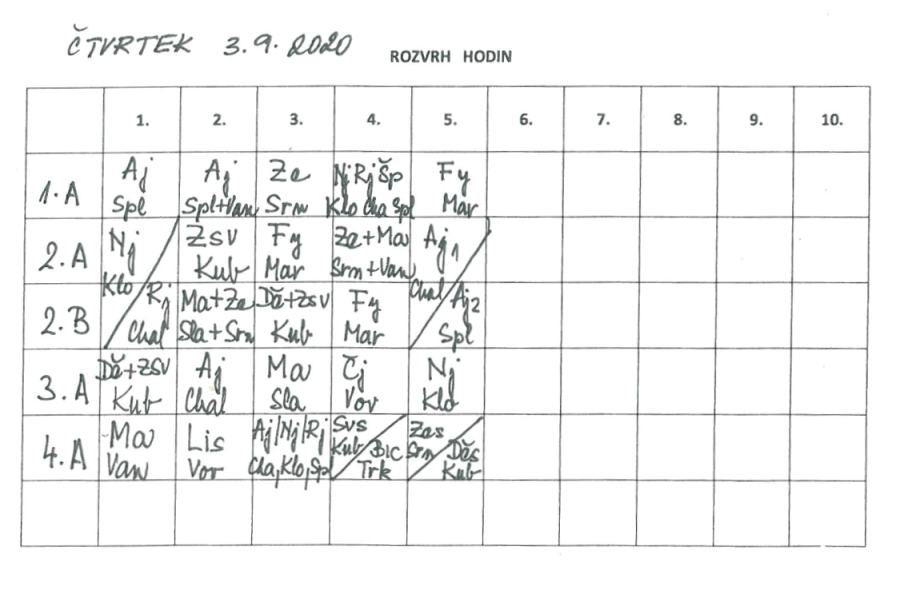 ČTVRTEK 3.9.2020
ROZVRH HODIN
1. 2. 3. 4. 5. 6. 7. 8. 9. 10.
1.A Aj Aj Ze Nj Rj Šp Fy
Spl Spl+Van Srn Klo Cha Spl Mar
2.A Nj ZSV Fy Ze+Ma Aj1
Klo Kub Mar Srn+Van Chal
2.B Rj Ma+Ze Dě+ZSV Fy Aj2
Chal Sla+Srn Kub Mar Spl
3.A Dě+ZSV Aj Ma Čj Nj
Kub Chal Sla Vor Klo
4.A Ma Lis Aj/Nj/Rj SVS BIC Zes Děs
Van Vor Cha,Klo,Spl Kub Trk Srn Kub